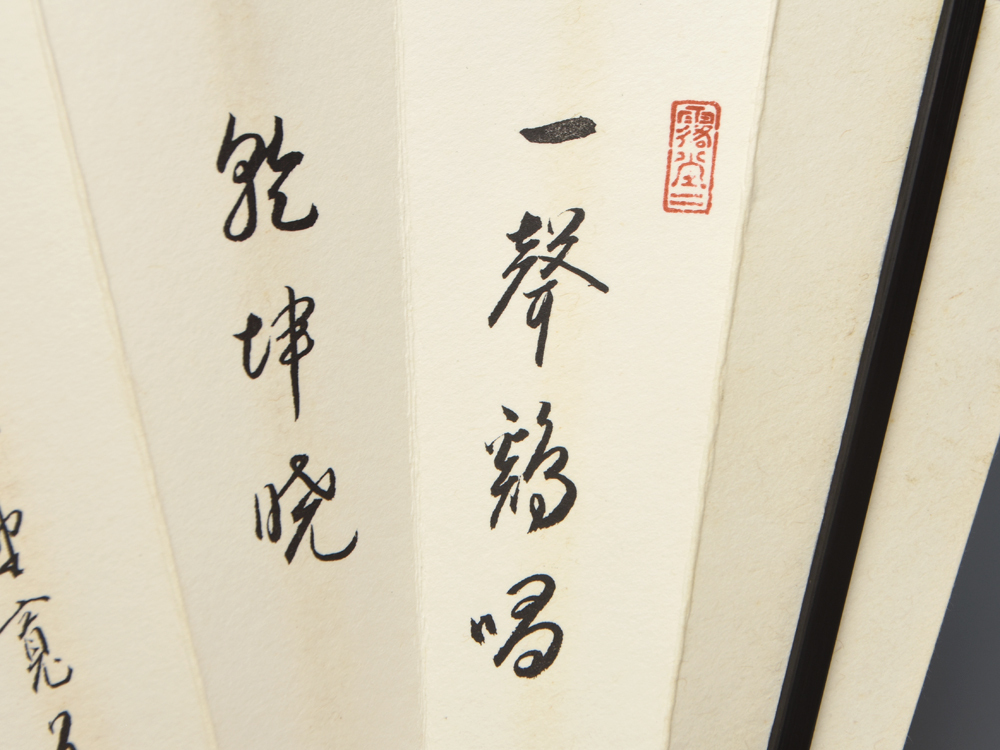 一聲鷄唱
乾坤曉
寛